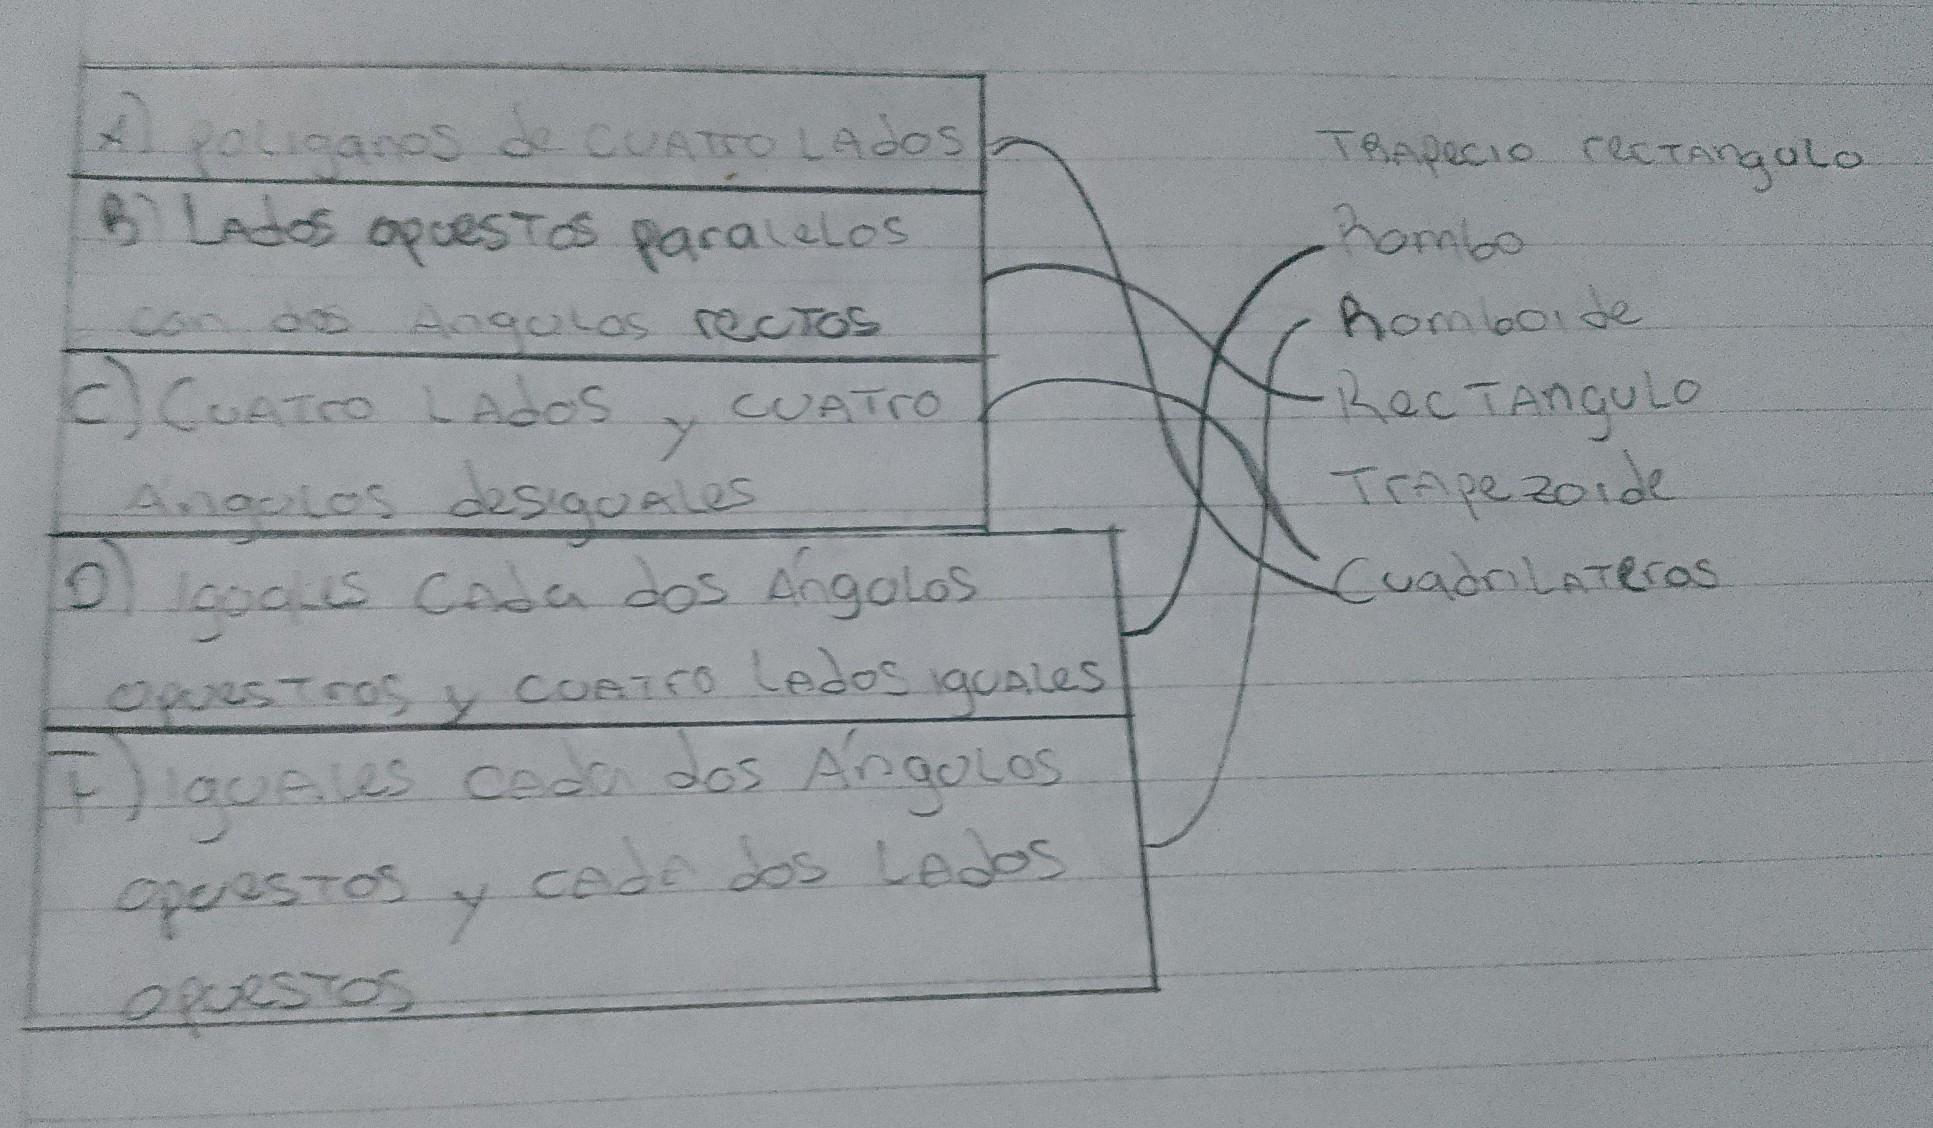 A) poliganos de cuatro lados
B) Lados opuestos paralelos
con dos Angulos rectos
C) Cuatro lados y cuatro
Angulos desiguales
D) Iguales cada dos Ángolos
opuestros y cuatro lados iguales
F) iguales cada dos Ángolos
opuestos y cada dos lados
opuestos
Trapecio rectangulo
Rombo
Romboide
Rectangulo
Trapezoide
Cuadrilateros